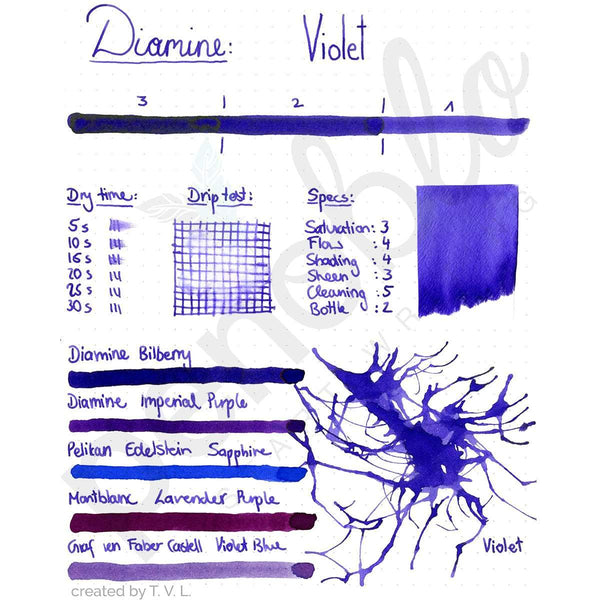 Diamine: Violet
3 | 2 | 1
Dry time: Drip test: Specs:
5s
10s
15s
20s
25s
30s
Saturation: 3
Flow : 4
Shading : 4
Sheen : 3
Cleaning : 5
Bottle : 2
Diamine Bilberry
Diamine Imperial Purple
Pelikan Edelstein Sapphire
Montblanc Lavender Purple
Graf von Faber Castell Violet Blue
Violet
created by T. V. L.